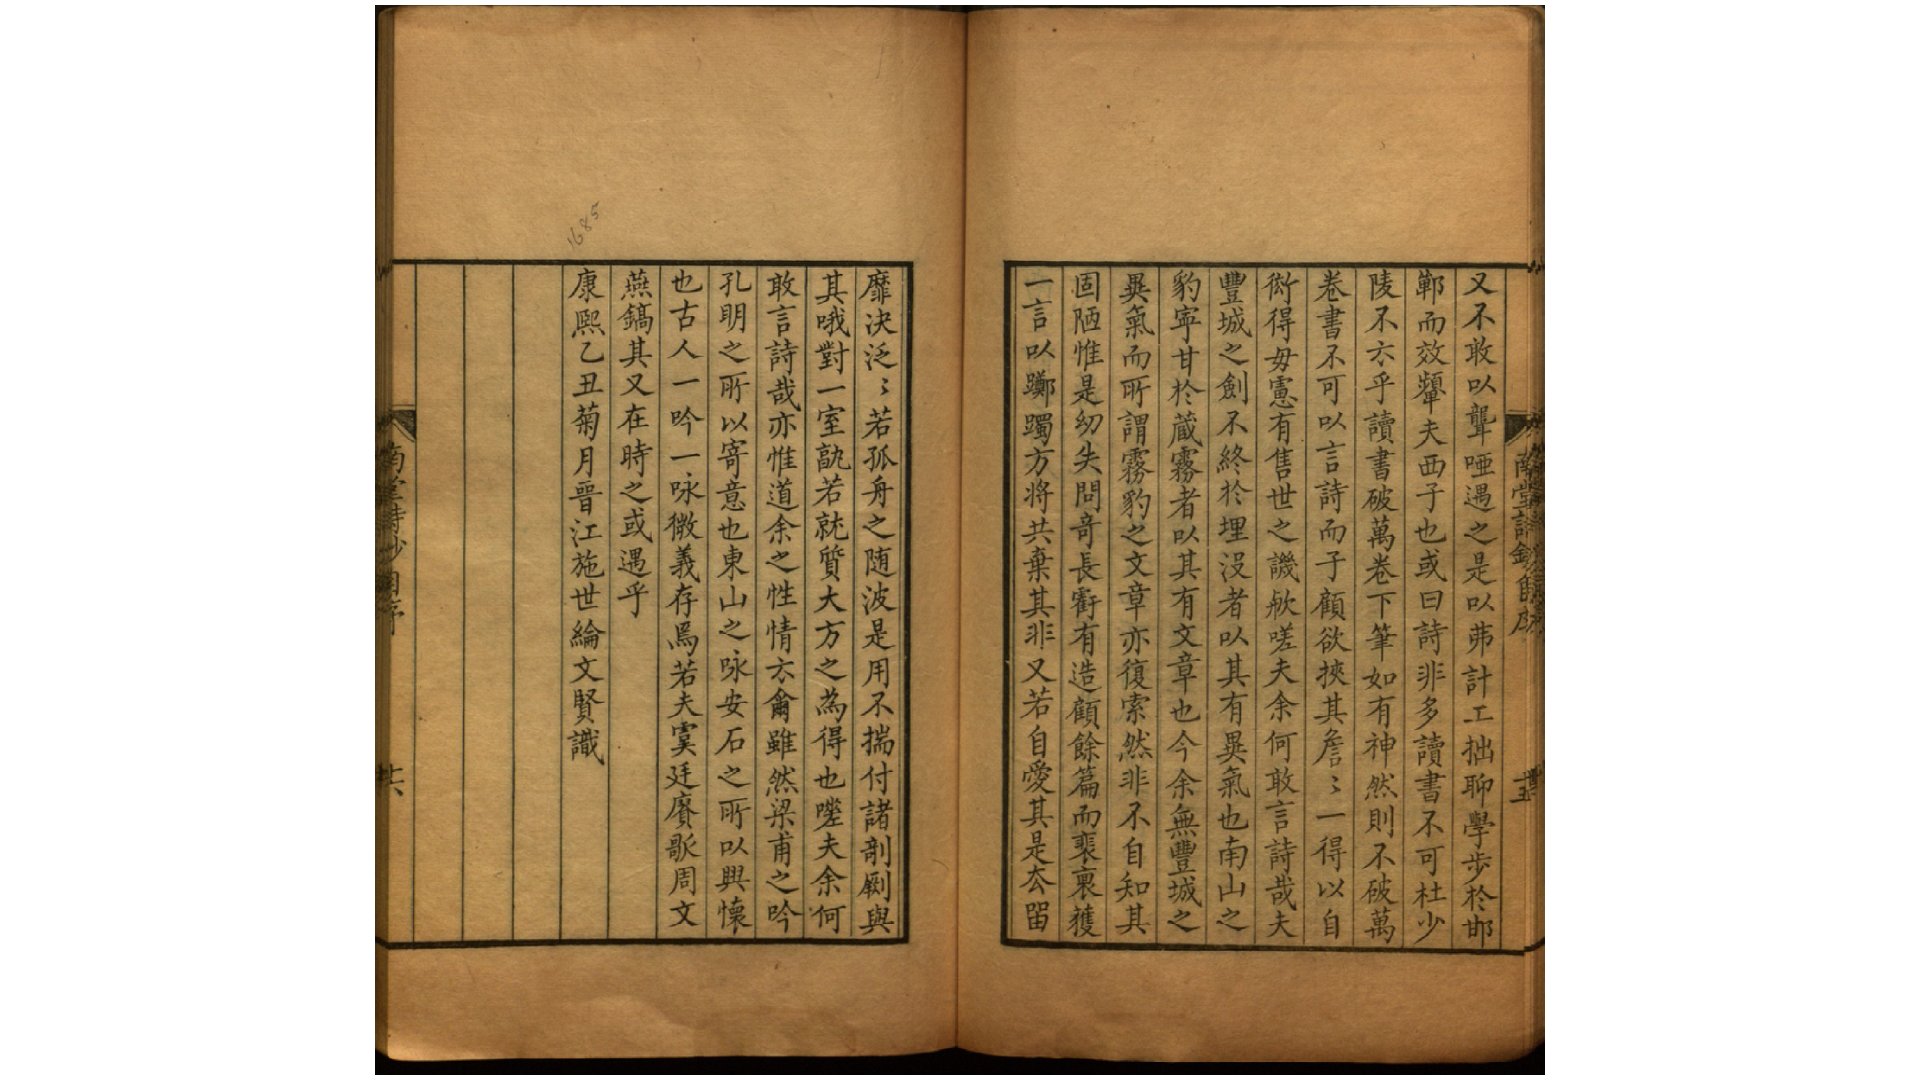 又不敢以聾啞遇之是以弗計工拙聊學步於邯
鄲而效顰夫西子也或曰詩非多讀書不可杜少
陵不云乎讀書破萬卷下筆如有神然則不破萬
卷書不可以言詩而子顧欲挾其詹〻一得以自
衒得毋憲有售世之譏歟嗟夫余何敢言詩哉夫
豐城之劍不終於埋沒者以其有異氣也南山之
豹寧甘於蔵霧者以其有文章也今余無豐城之
異氣而所謂霧豹之文章亦復索然非不自知其
固陋惟是幼失問奇長窮有造顧餘篇而裴裹獲
一言以躑躅方将共棄其非又若自愛其是厺留
南堂詩鈔自序
十五
靡决泛〻若孤舟之随波是用不揣付諸剞劂與
其哦對一室孰若就質大方之為得也嗟夫余何
敢言詩哉亦惟道余之性情云爾雖然梁甫之吟
孔明之所以寄意也東山之咏安石之所以興懷
也古人一吟一咏微義存焉若夫虞廷賡歌周文
燕鎬其又在時之或遇乎
康熙乙丑菊月晉江施世綸文賢識
1685
南堂詩鈔自序
十六